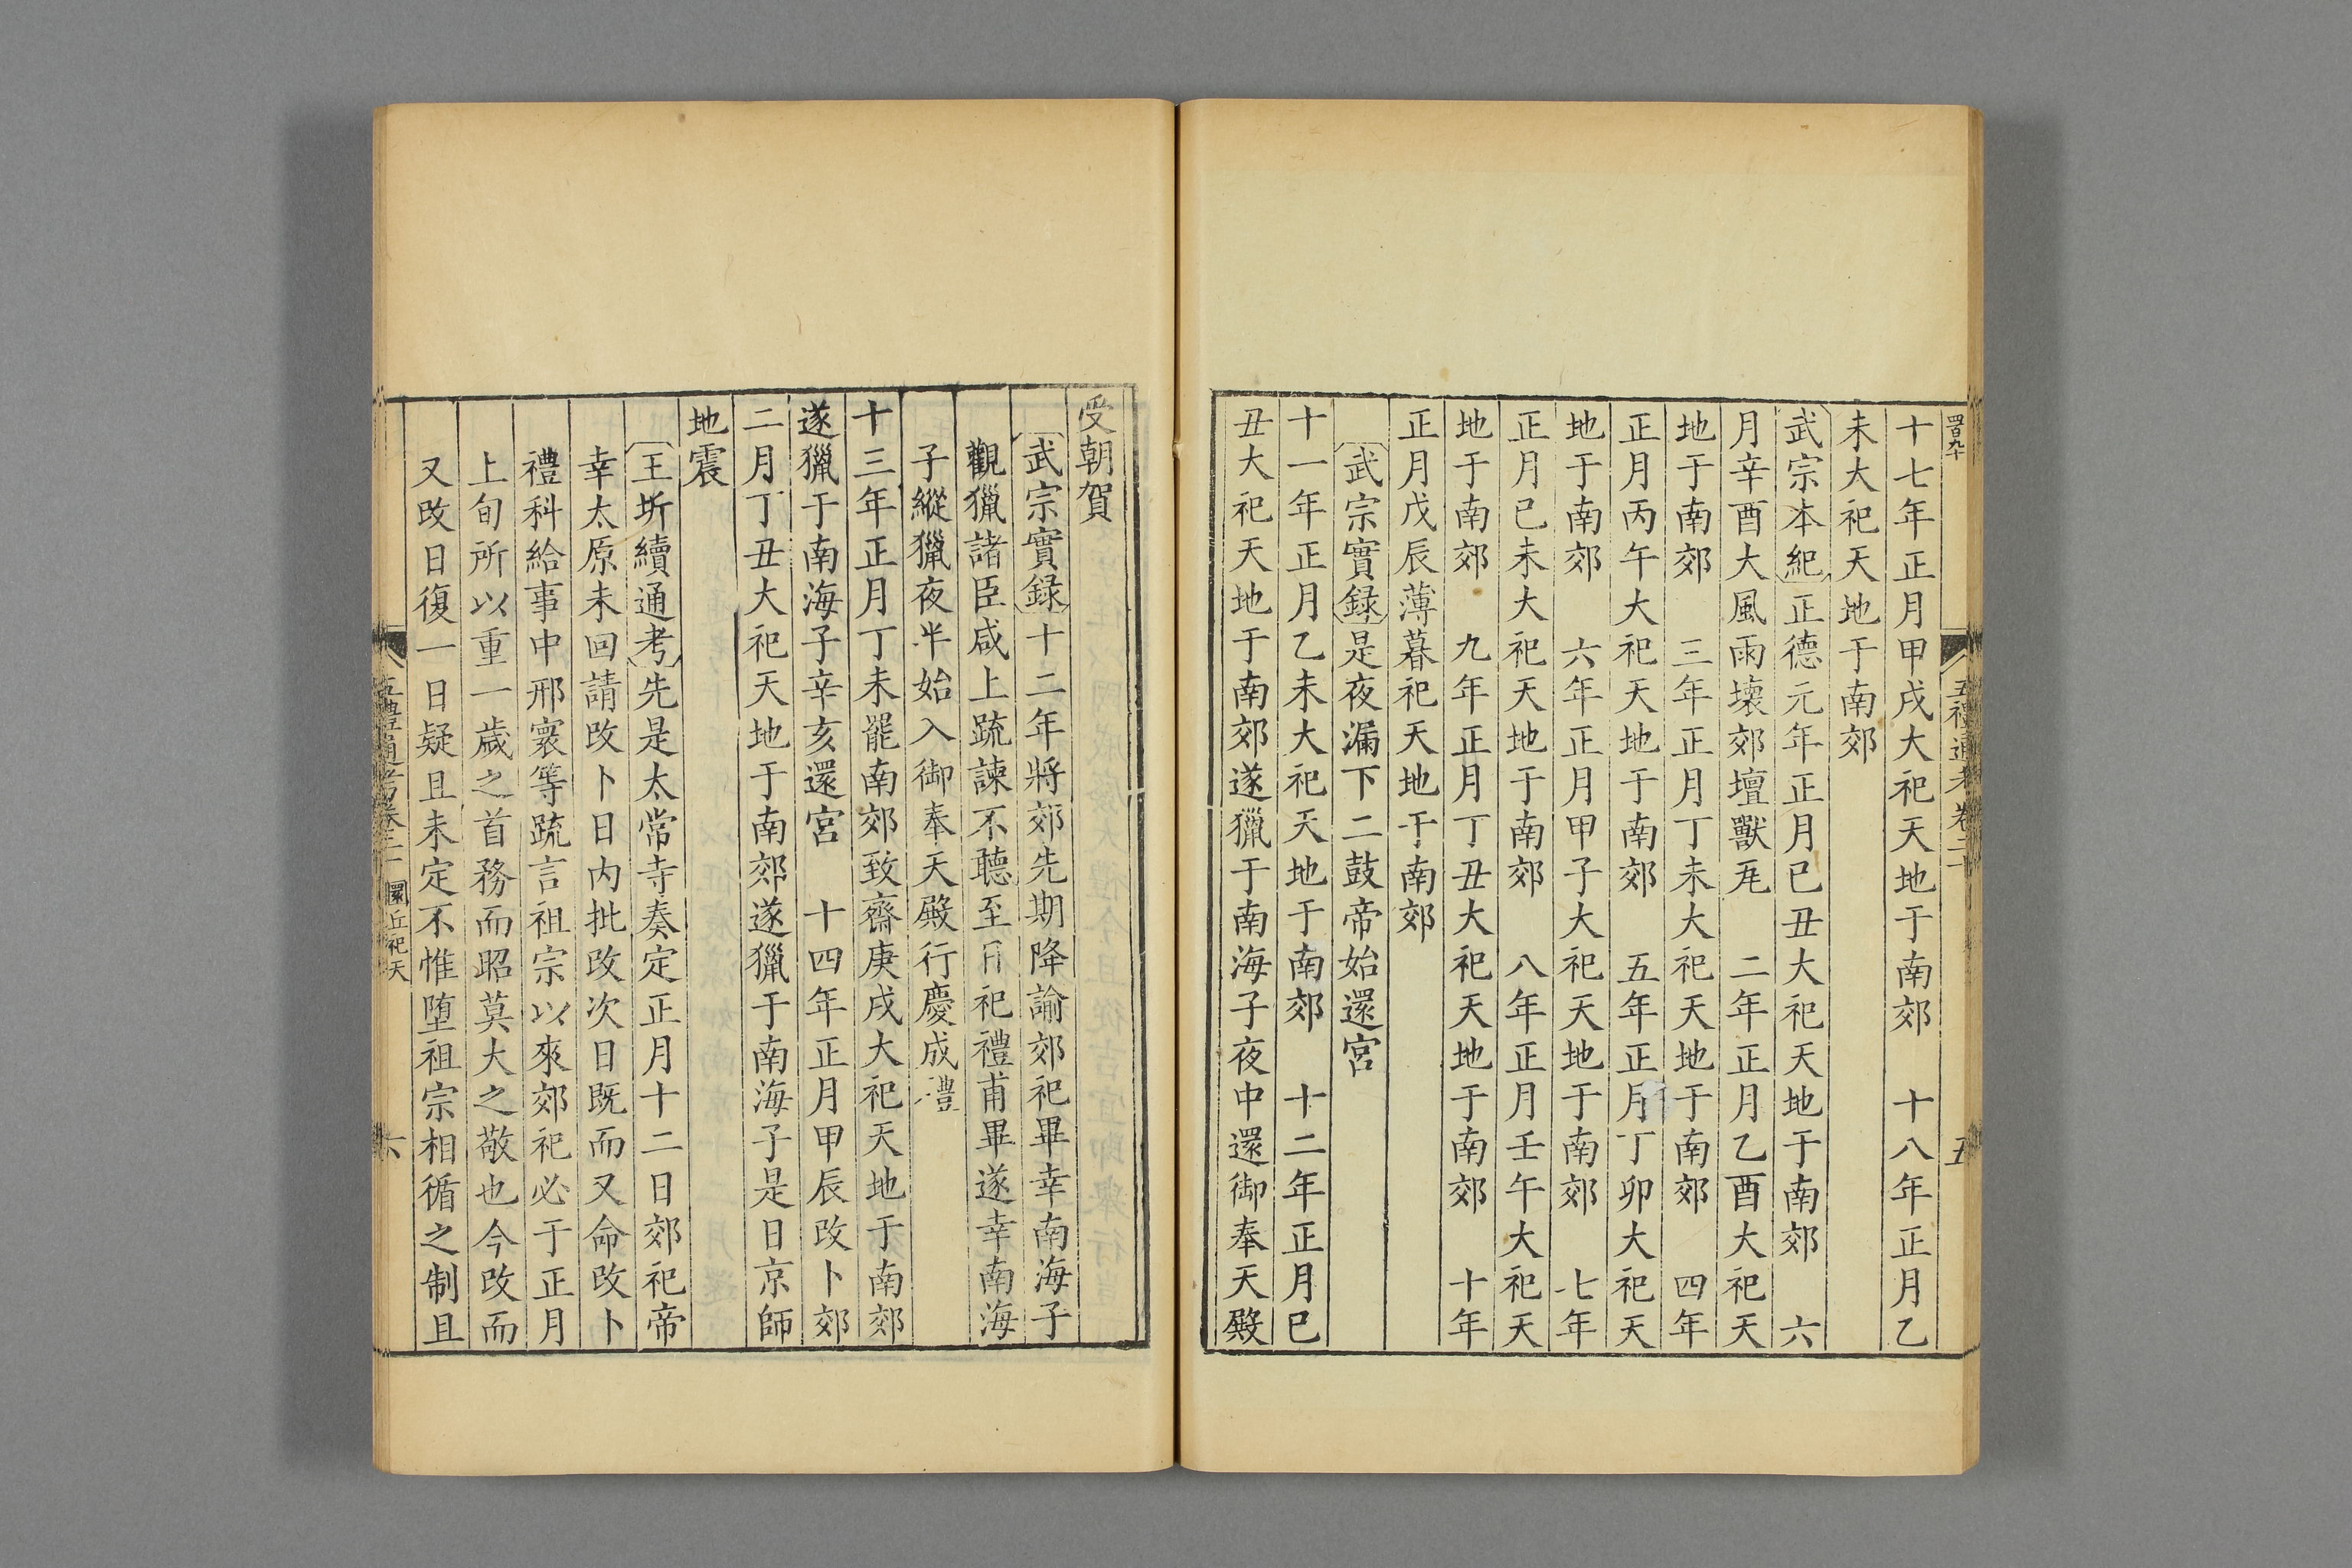 四百九十
五禮通考卷二十
五
十七年正月甲戌大祀天地于南郊　十八年正月乙
未大祀天地于南郊
武宗本紀正德元年正月已丑大祀天地于南郊　六
月辛酉大風雨壞郊壇獸瓦　二年正月乙酉大祀天
地于南郊　三年正月丁未大祀天地于南郊　四年
正月丙午大祀天地于南郊　五年正月丁卯大祀天
地于南郊　六年正月甲子大祀天地于南郊　七年
正月已未大祀天地于南郊　八年正月壬午大祀天
地于南郊　九年正月丁丑大祀天地于南郊　十年
正月戊辰薄暮祀天地于南郊
武宗實録是夜漏下二鼓帝始還宮
十一年正月乙未大祀天地于南郊　十二年正月已
丑大祀天地于南郊遂獵于南海子夜中還御奉天殿
受朝賀
武宗實録十二年將郊先期降諭郊祀畢幸南海子
觀獵諸臣咸上疏諫不聽至日祀禮甫畢遂幸南海
子縱獵夜半始入御奉天殿行慶成禮
十三年正月丁未罷南郊致齋庚戌大祀天地于南郊
遂獵于南海子辛亥還宮　十四年正月甲辰改卜郊
二月丁丑大祀天地于南郊遂獵于南海子是日京師
地震
王圻續通考先是太常寺奏定正月十二日郊祀帝
幸太原未回請改卜日内批改次日既而又命改卜
禮科給事中邢寰等疏言祖宗以來郊祀必于正月
上旬所以重一歲之首務而昭莫大之敬也今改而
又改日復一日疑且未定不惟墮祖宗相循之制且
五禮通考卷二十　圜丘祀天
六